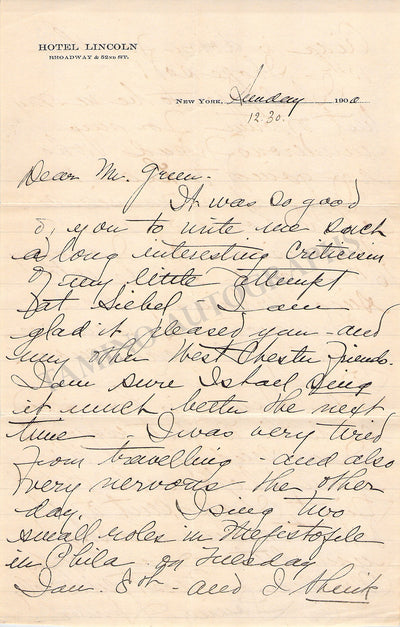 HOTEL LINCOLN
BROADWAY & 52ND ST.
NEW YORK, Sunday 190
12.30.
Dear Mr. Green.
It was so good
of you to write me such
a long interesting criticism
of my little attempt
at Siebel I am
glad it pleased you - and
my other West Chester friends.
I am sure I shall sing
it much better the next
time. I was very tired
from travelling - and also
very nervous the other
day. I sing two
small roles in Mefistofele
in Phila on Tuesday
Jan. 8th - and I think
TAMINO AUTOGRAPHS